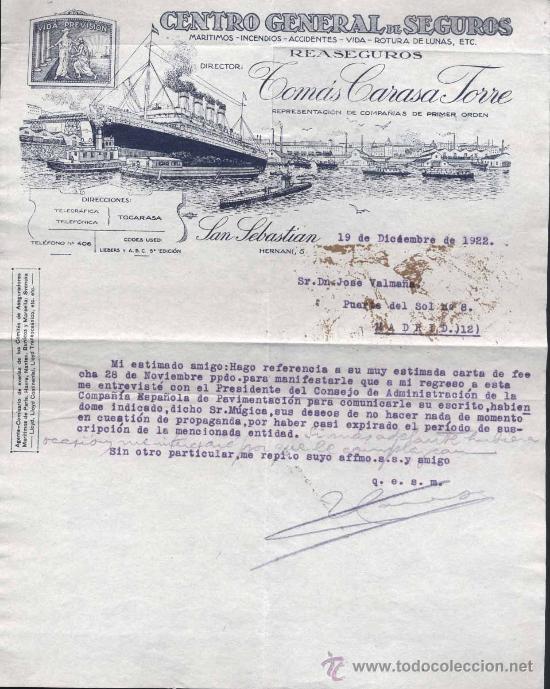 VIDA-PREVISION
CENTRO GENERAL DE SEGUROS
MARITIMOS - INCENDIOS - ACCIDENTES - VIDA - ROTURA DE LUNAS, ETC.
REASEGUROS
DIRECTOR:
Tomás Carasa Torre
REPRESENTACION DE COMPAÑIAS DE PRIMER ORDEN
DIRECCIONES:
TELEGRÁFICA
TELEFÓNICA
TOCARASA
TELÉFONO Nº 406
CODES USED:
LIEBERS Y A.B.C. 5ª EDICIÓN
San Sebastian
HERNANI, 5
19 de Diciembre de 1922.
Sr.Dn.Jose Valmaña.
Puerta del Sol nº 8.
M A D R I D.)12)
Agente-Comisario de averías de los Comités de Aseguradores
Marítimos de París, Havre, Nantes, Burdeos y Marsella; Svenska
Lloyd, Lloyd Continental, Lloyd Transoceánico, etc. etc.
Mi estimado amigo:Hago referencia a su muy estimada carta de fee
cha 28 de Noviembre ppdo.para manifestarle que a mi regreso a esta
me entrevisté con el Presidente del Consejo de Administración de la
Compañía Española de Pavimentación para comunicarle su escrito,habien
dome indicado,dicho Sr.Múgica,sus deseos de no hacer nada de momento
en cuestión de propaganda,por haber casi expirado el período de sus-
cripción de la mencionada entidad. Si más adelante hubiera
ocasión
Sin otro particular,me repito suyo affmo.s.s.y amigo
q. e. s. m.
www.todocoleccion.net